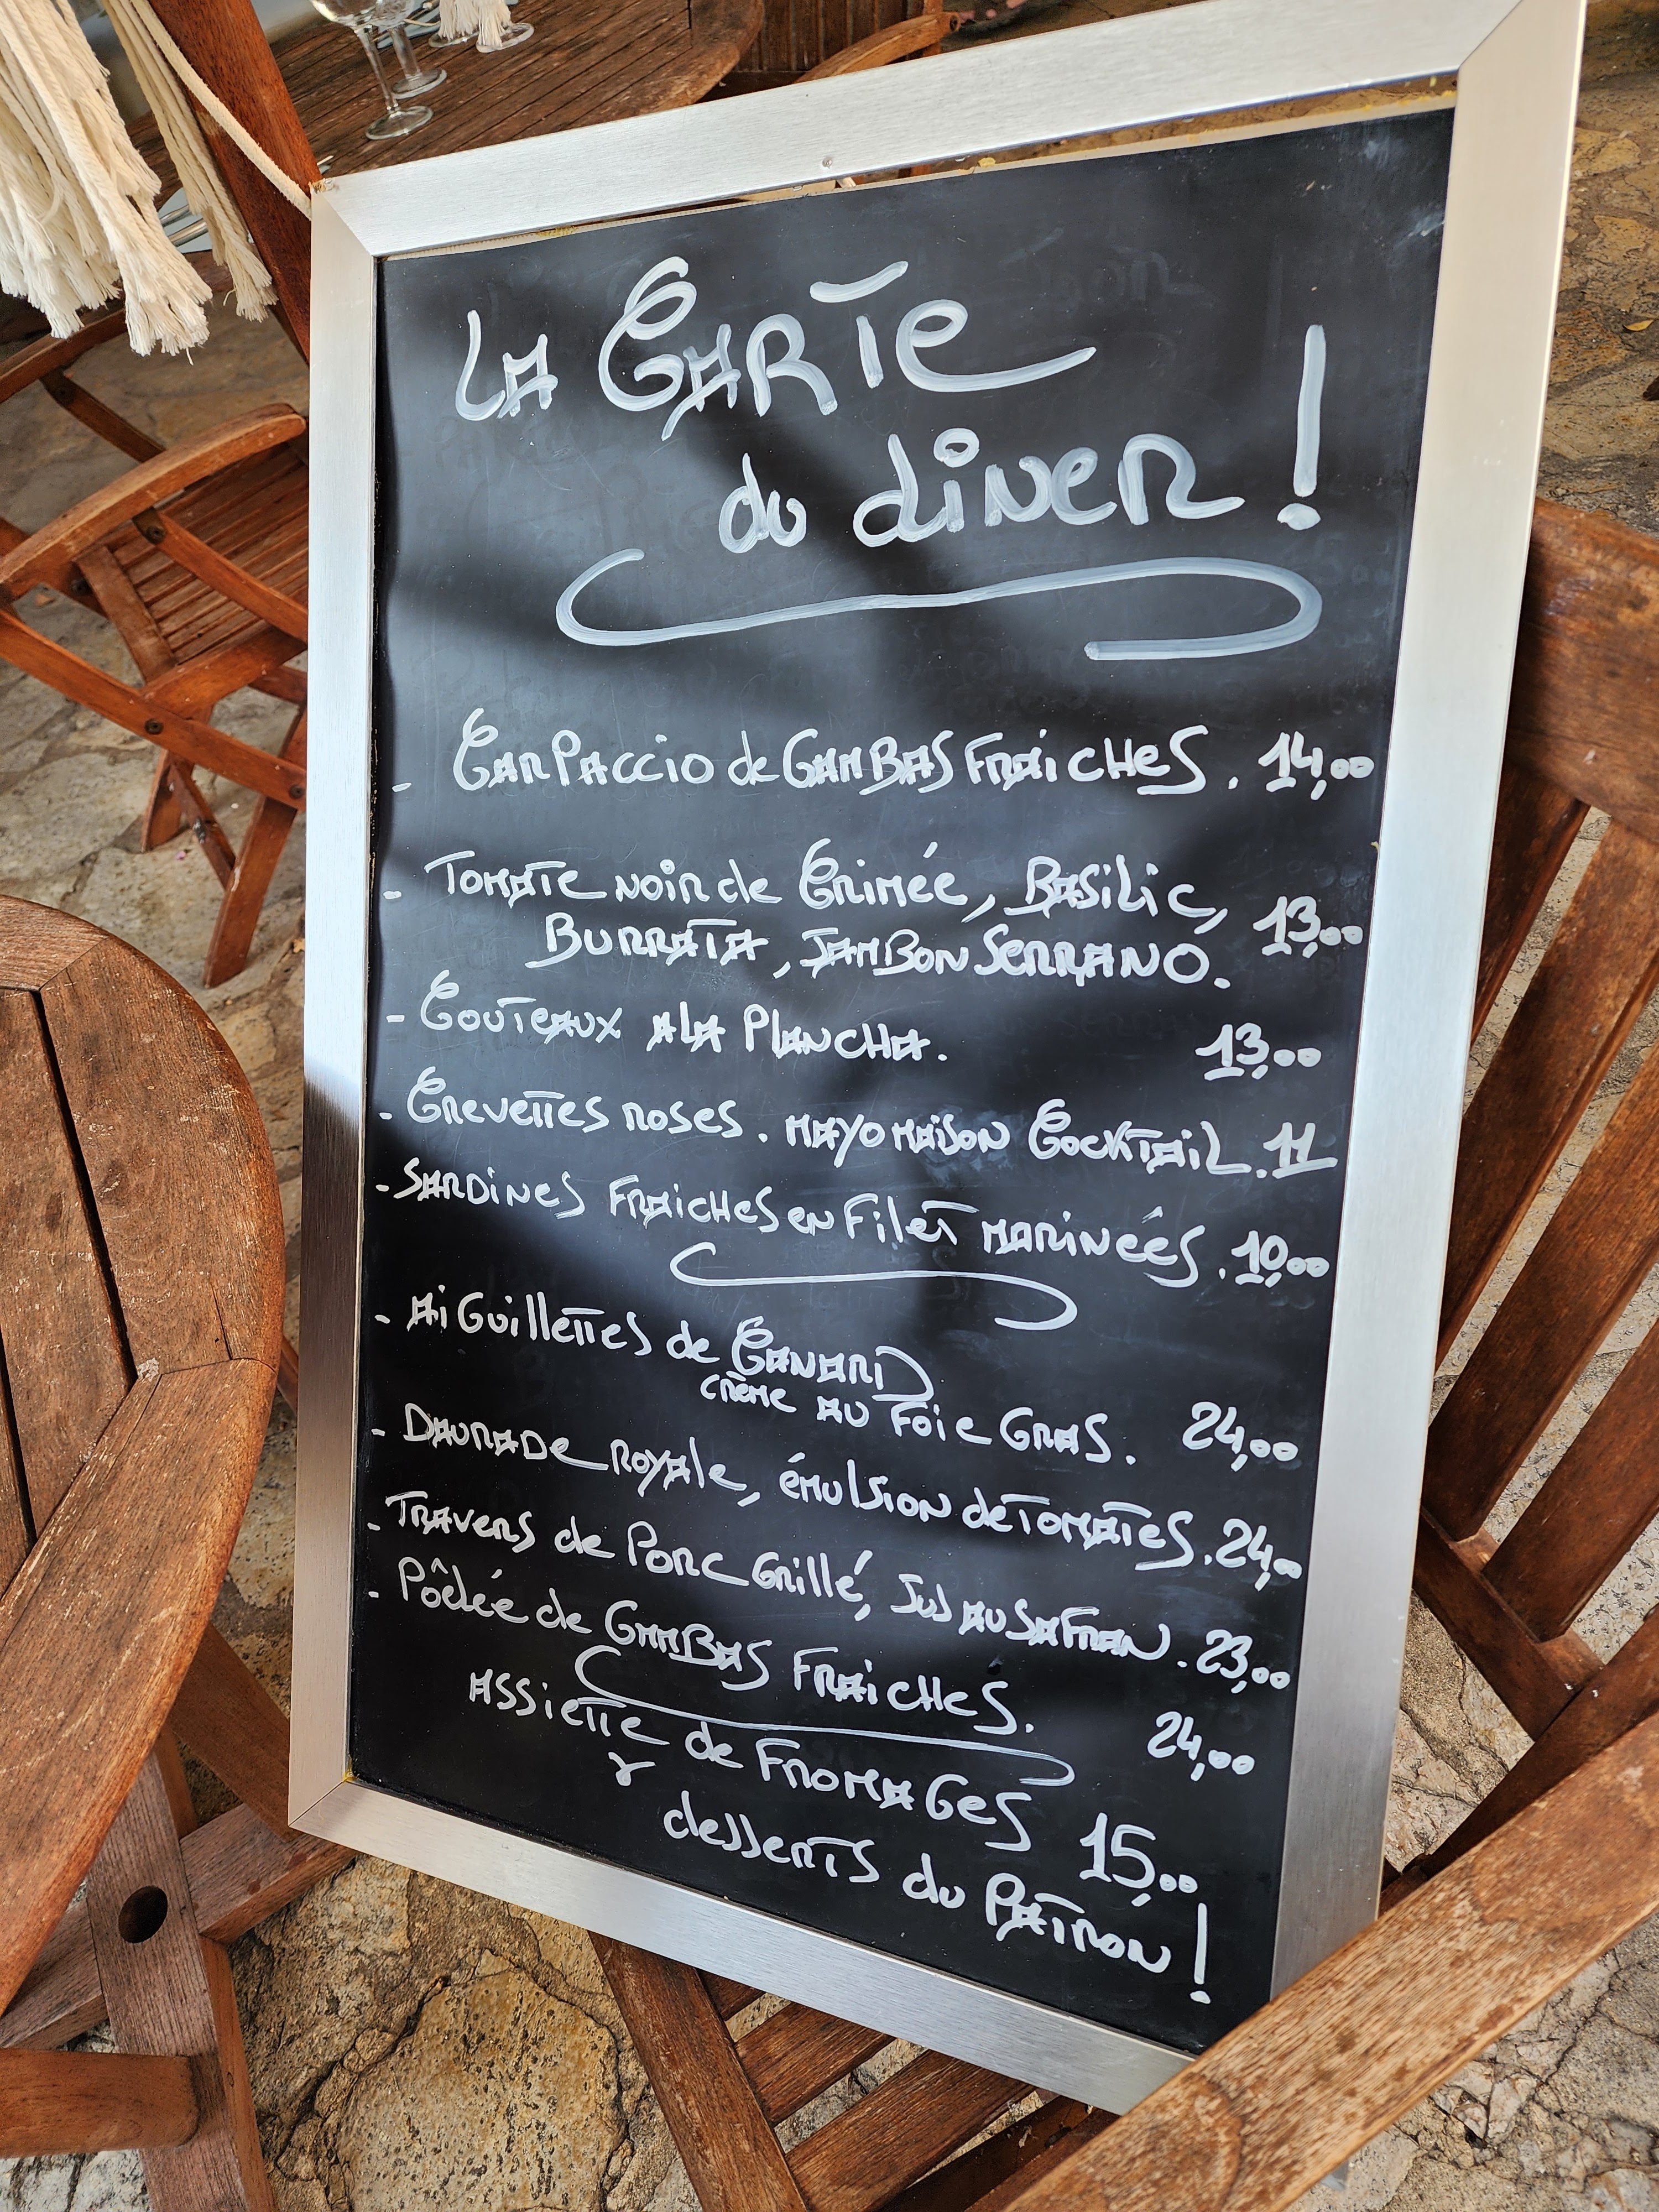 LA CARTE
du diner !
- CARPACCIO de GAMBAS FRAiCHES. 14,00
- TOMATE NOIR de CRIMÉE, BASILIC,
BURRATA, JAMBON SERRANO. 13,00
- COUTEAUX A LA PLANCHA. 13,00
- CREVETTES ROSES. MAYO MAISON COCKTAIL. 11
- SARDINES FRAICHES EN FILET MARINÉES. 10,00
- AIGUILLETTES de CANARD
CRÈME AU FOIE GRAS. 24,00
- DAURADE ROYALE, ÉMULSION de TOMATES. 24,00
- TRAVERS de PORC GRILLÉ, JUS AU SAFRAN. 23,00
- PÔÊLÉE de GAMBAS FRAICHES. 24,00
ASSIETTE de FROMAGES 15,00
&
desserts du PATRON !